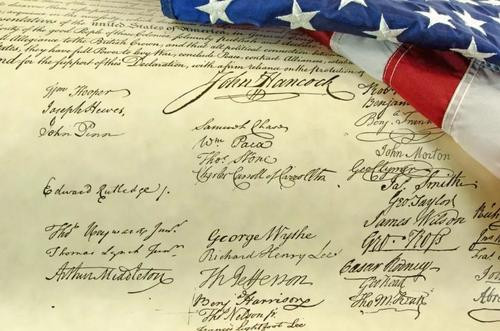 united States of America
of the good People of these Colonies
to the British Crown, and that all political connection
States, they have full Power to levy War, conclude Peace, contract Alliances,
nd for the support of this Declaration, with a firm reliance on the protection of
John Hancock
Wm Hooper
Joseph Hewes,
John Penn
Edward Rutledge /.
Thos Heyward Junr.
Thomas Lynch Junr.
Arthur Middleton
Samuel Chase
Wm Paca
Thos Stone
Charles Carroll of Carrollton
George Wythe
Richard Henry Lee
Th Jefferson
Benj Harrison
Thos Nelson jr.
Francis Lightfoot Lee
Robt
Benjam
Benj. Frank
John Morton
Geo Clymer
Jas. Smith
Geo. Taylor
James Wilson
Geo. Ross
Caesar Rodney
Geo Read
Tho M:Kean